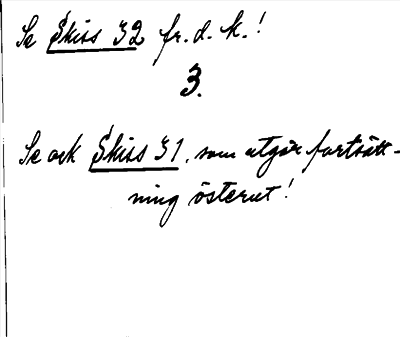 Se Skiss 32 fr. d. k.!
3.
Se ock Skiss 31, som utgör fortsätt-
ning österut!